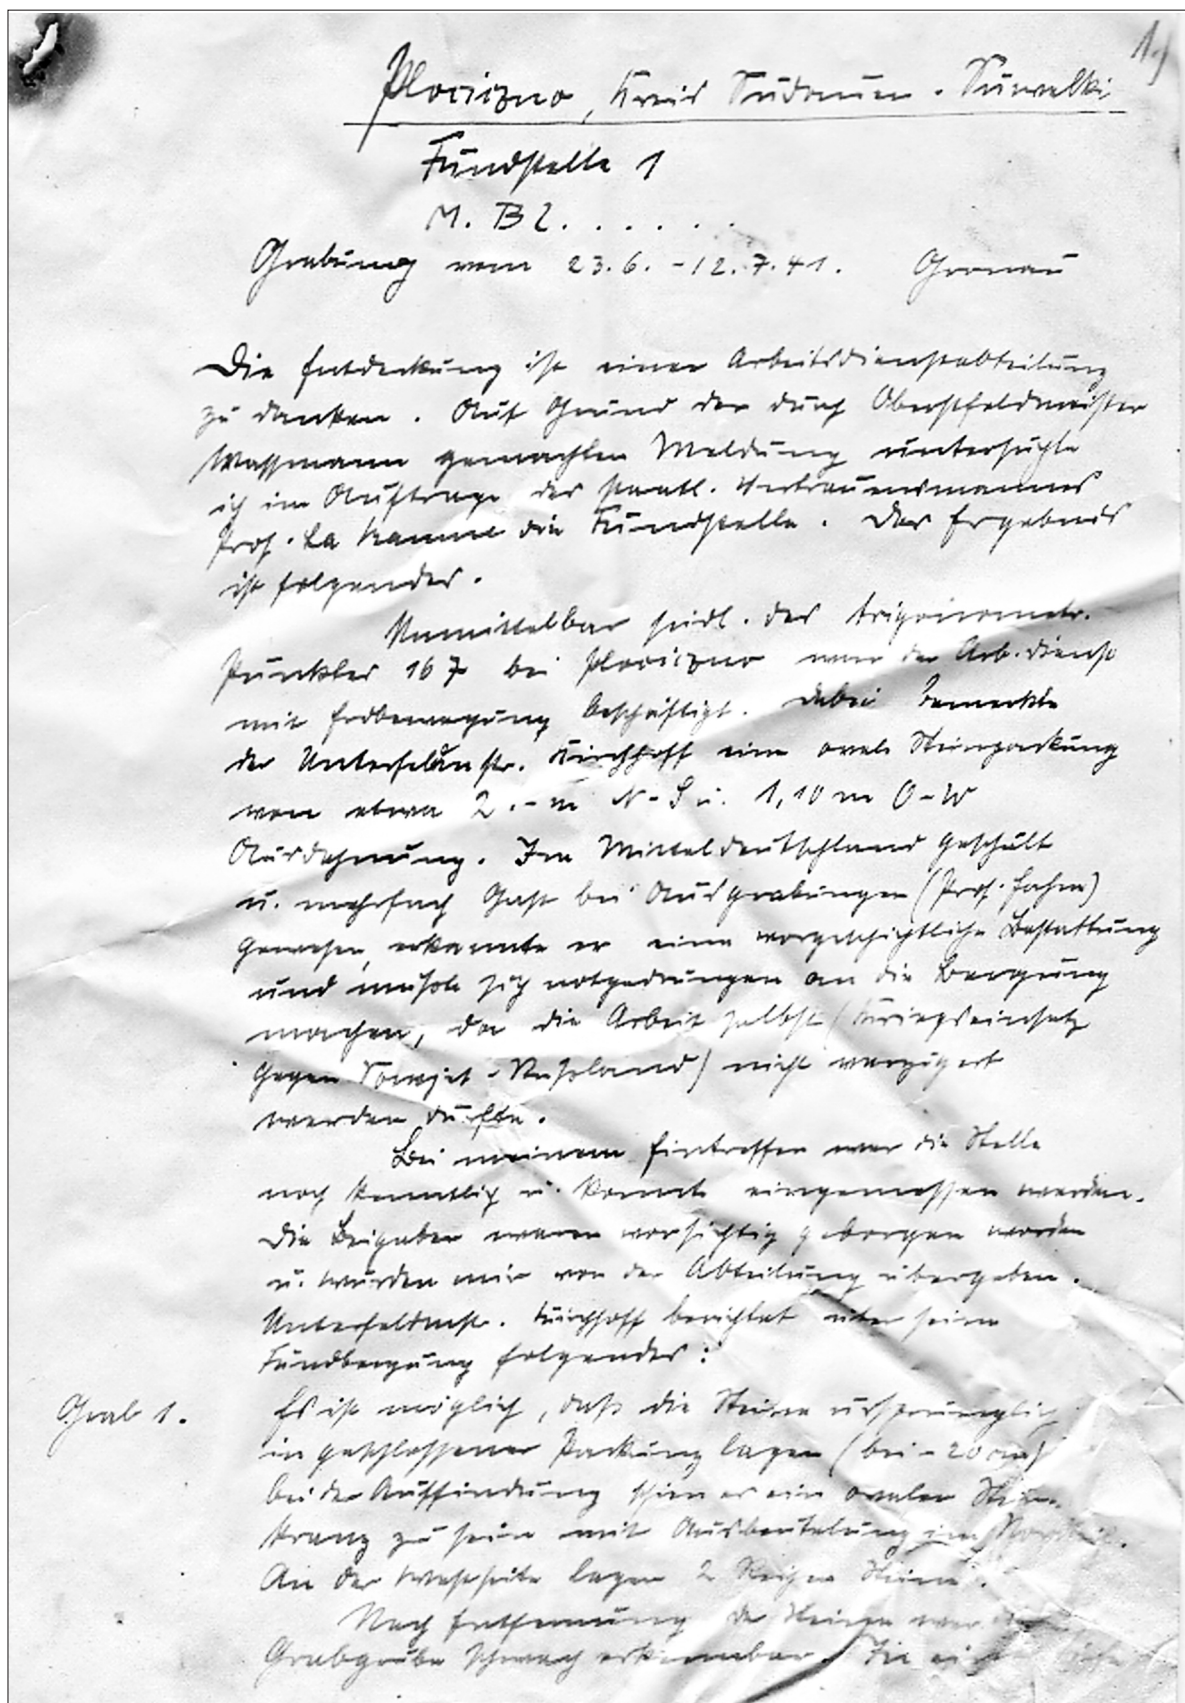 1.)
Plociczno, Kreis Sudauen - Suwalki
Fundstelle 1
M. Bl. . . . . . .
Grabung vom 23.6. - 12.7.41. Gronau
Die Entdeckung ist einer Arbeitsdienstabteilung
zu danken. Auf Grund der durch Oberstfeldmeister
Wassmann gemachten Meldung untersuchte
ich im Auftrage des staatl. Vertrauensmannes
Prof. La Baume die Fundstelle. Das Ergebnis
ist folgendes.
Unmittelbar südl. des trigonometr.
Punktes 167 bei Plociczno war der Arb.dienst
mit Erdbewegung beschäftigt. Dabei bemerkte
der Unterfeldmstr. Kirchhoff eine ovale Steinpackung
von etwa 2.- m N-S u. 1,10 m O-W
Ausdehnung. In Mitteldeutschland geschult
u. mehrfach Gast bei Ausgrabungen (Prof. Jahn)
gewesen, erkannte er eine vorgeschichtliche Bestattung
und musste sich notgedrungen an die Bergung
machen, da die Arbeit selbst (Kriegseinsatz
gegen Sowjet-Russland) nicht verzögert
werden durfte.
Bei meinem Eintreffen war die Stelle
noch kenntlich u. konnte eingemessen werden.
Die Beigaben waren vorsichtig geborgen worden
u. wurden mir von der Abteilung übergeben.
Unterfeldmstr. Kirchhoff berichtet über seine
Fundbergung folgendes:
Grab 1. Es ist möglich, daß die Steine ursprünglich
in geschlossener Packung lagen (bei - 20 cm)
bei der Auffindung schien es ein ovaler Stein-
kranz zu sein mit Ausbeutelung im
An der Westseite lagen 2 Reihen Steine.
Nach Entfernung der Steine war die
Grabgrube schwach erkennbar. In